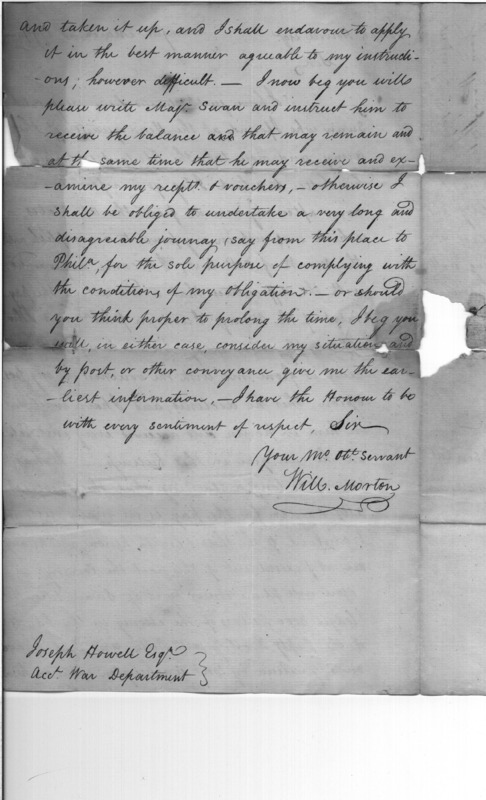 and taken it up, and I shall endavour to apply
it in the best manner agreable to my instructi-
-ons; however difficult. — I now beg you will
please write Majr. Swan and instruct him to
receive the balance and that may remain and
at th same time that he may receive and ex-
-amine my reptts. & vouchers, — otherwise I
shall be obliged to undertake a very long and
disagreiable journay (say from this place to
Phila, for the sole purpose of complying with
the conditions of my obligation. — or should
you think proper to prolong the time, I beg you
will, in either case, consider my situation and
by post, or other conveyance give me the ear-
-liest information, — I have the Honour to be
with every sentiment of respect, Sir
Your Mo. Obt. Servant
Will. Morton
Joseph Howell Esqr.
Acct. War Department